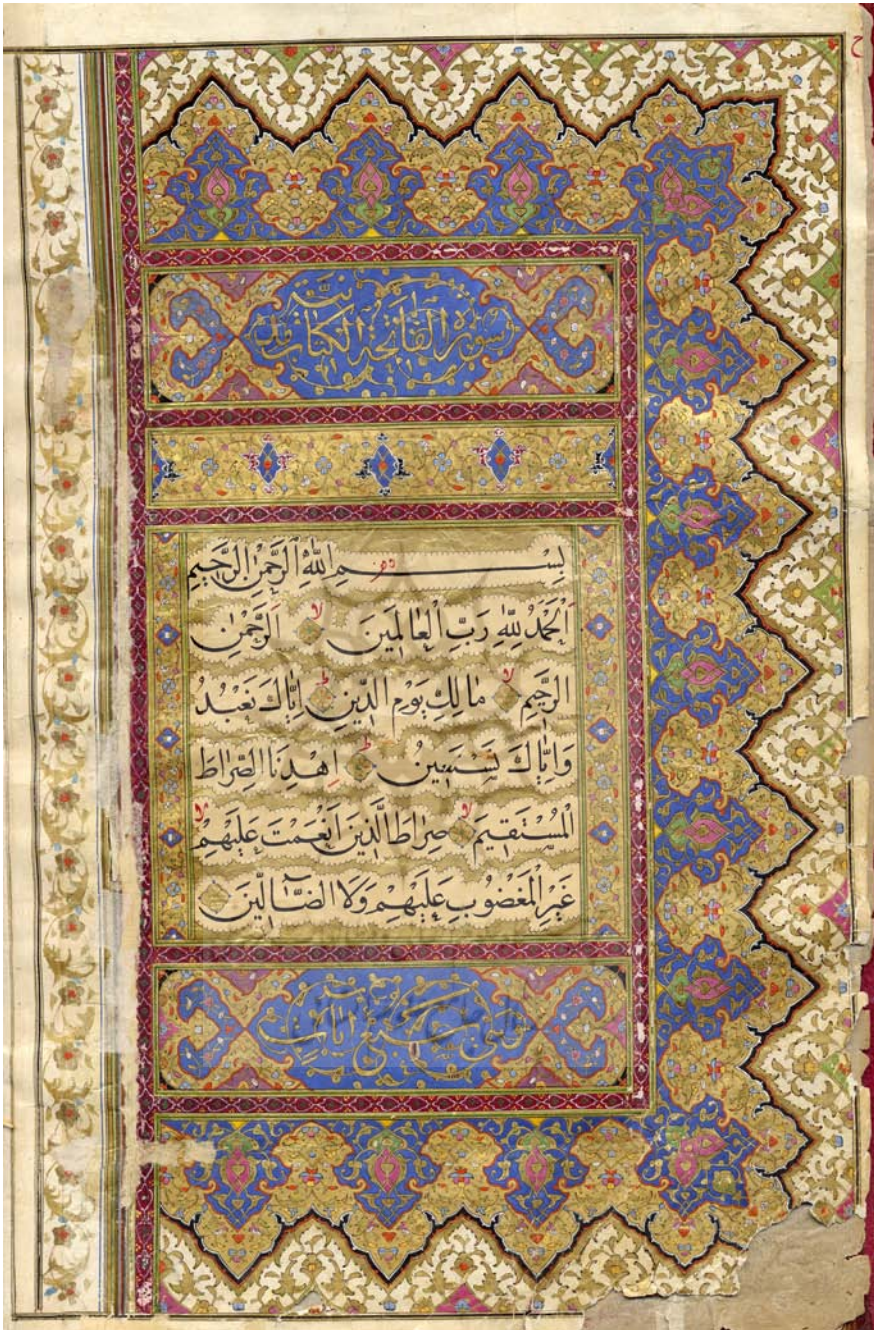 سورة الفاتحة الكتاب
بِسْمِ اللّٰهِ الرَّحْمٰنِ الرَّحِيمِ
اَلْحَمْدُ لِلّٰهِ رَبِّ الْعَالَمِينَ لا اَلرَّحْمٰنِ
الرَّحِيمِ لا مَالِكِ يَوْمِ الدِّينِ ط اِيَّاكَ نَعْبُدُ
وَاِيَّاكَ نَسْتَعِينُ ط اِهْدِنَا الصِّرَاطَ
الْمُسْتَقِيمَ لا صِرَاطَ الَّذِينَ اَنْعَمْتَ عَلَيْهِمْ لا
غَيْرِ الْمَغْضُوبِ عَلَيْهِمْ وَلَا الضَّآلِّينَ
سبع آيات